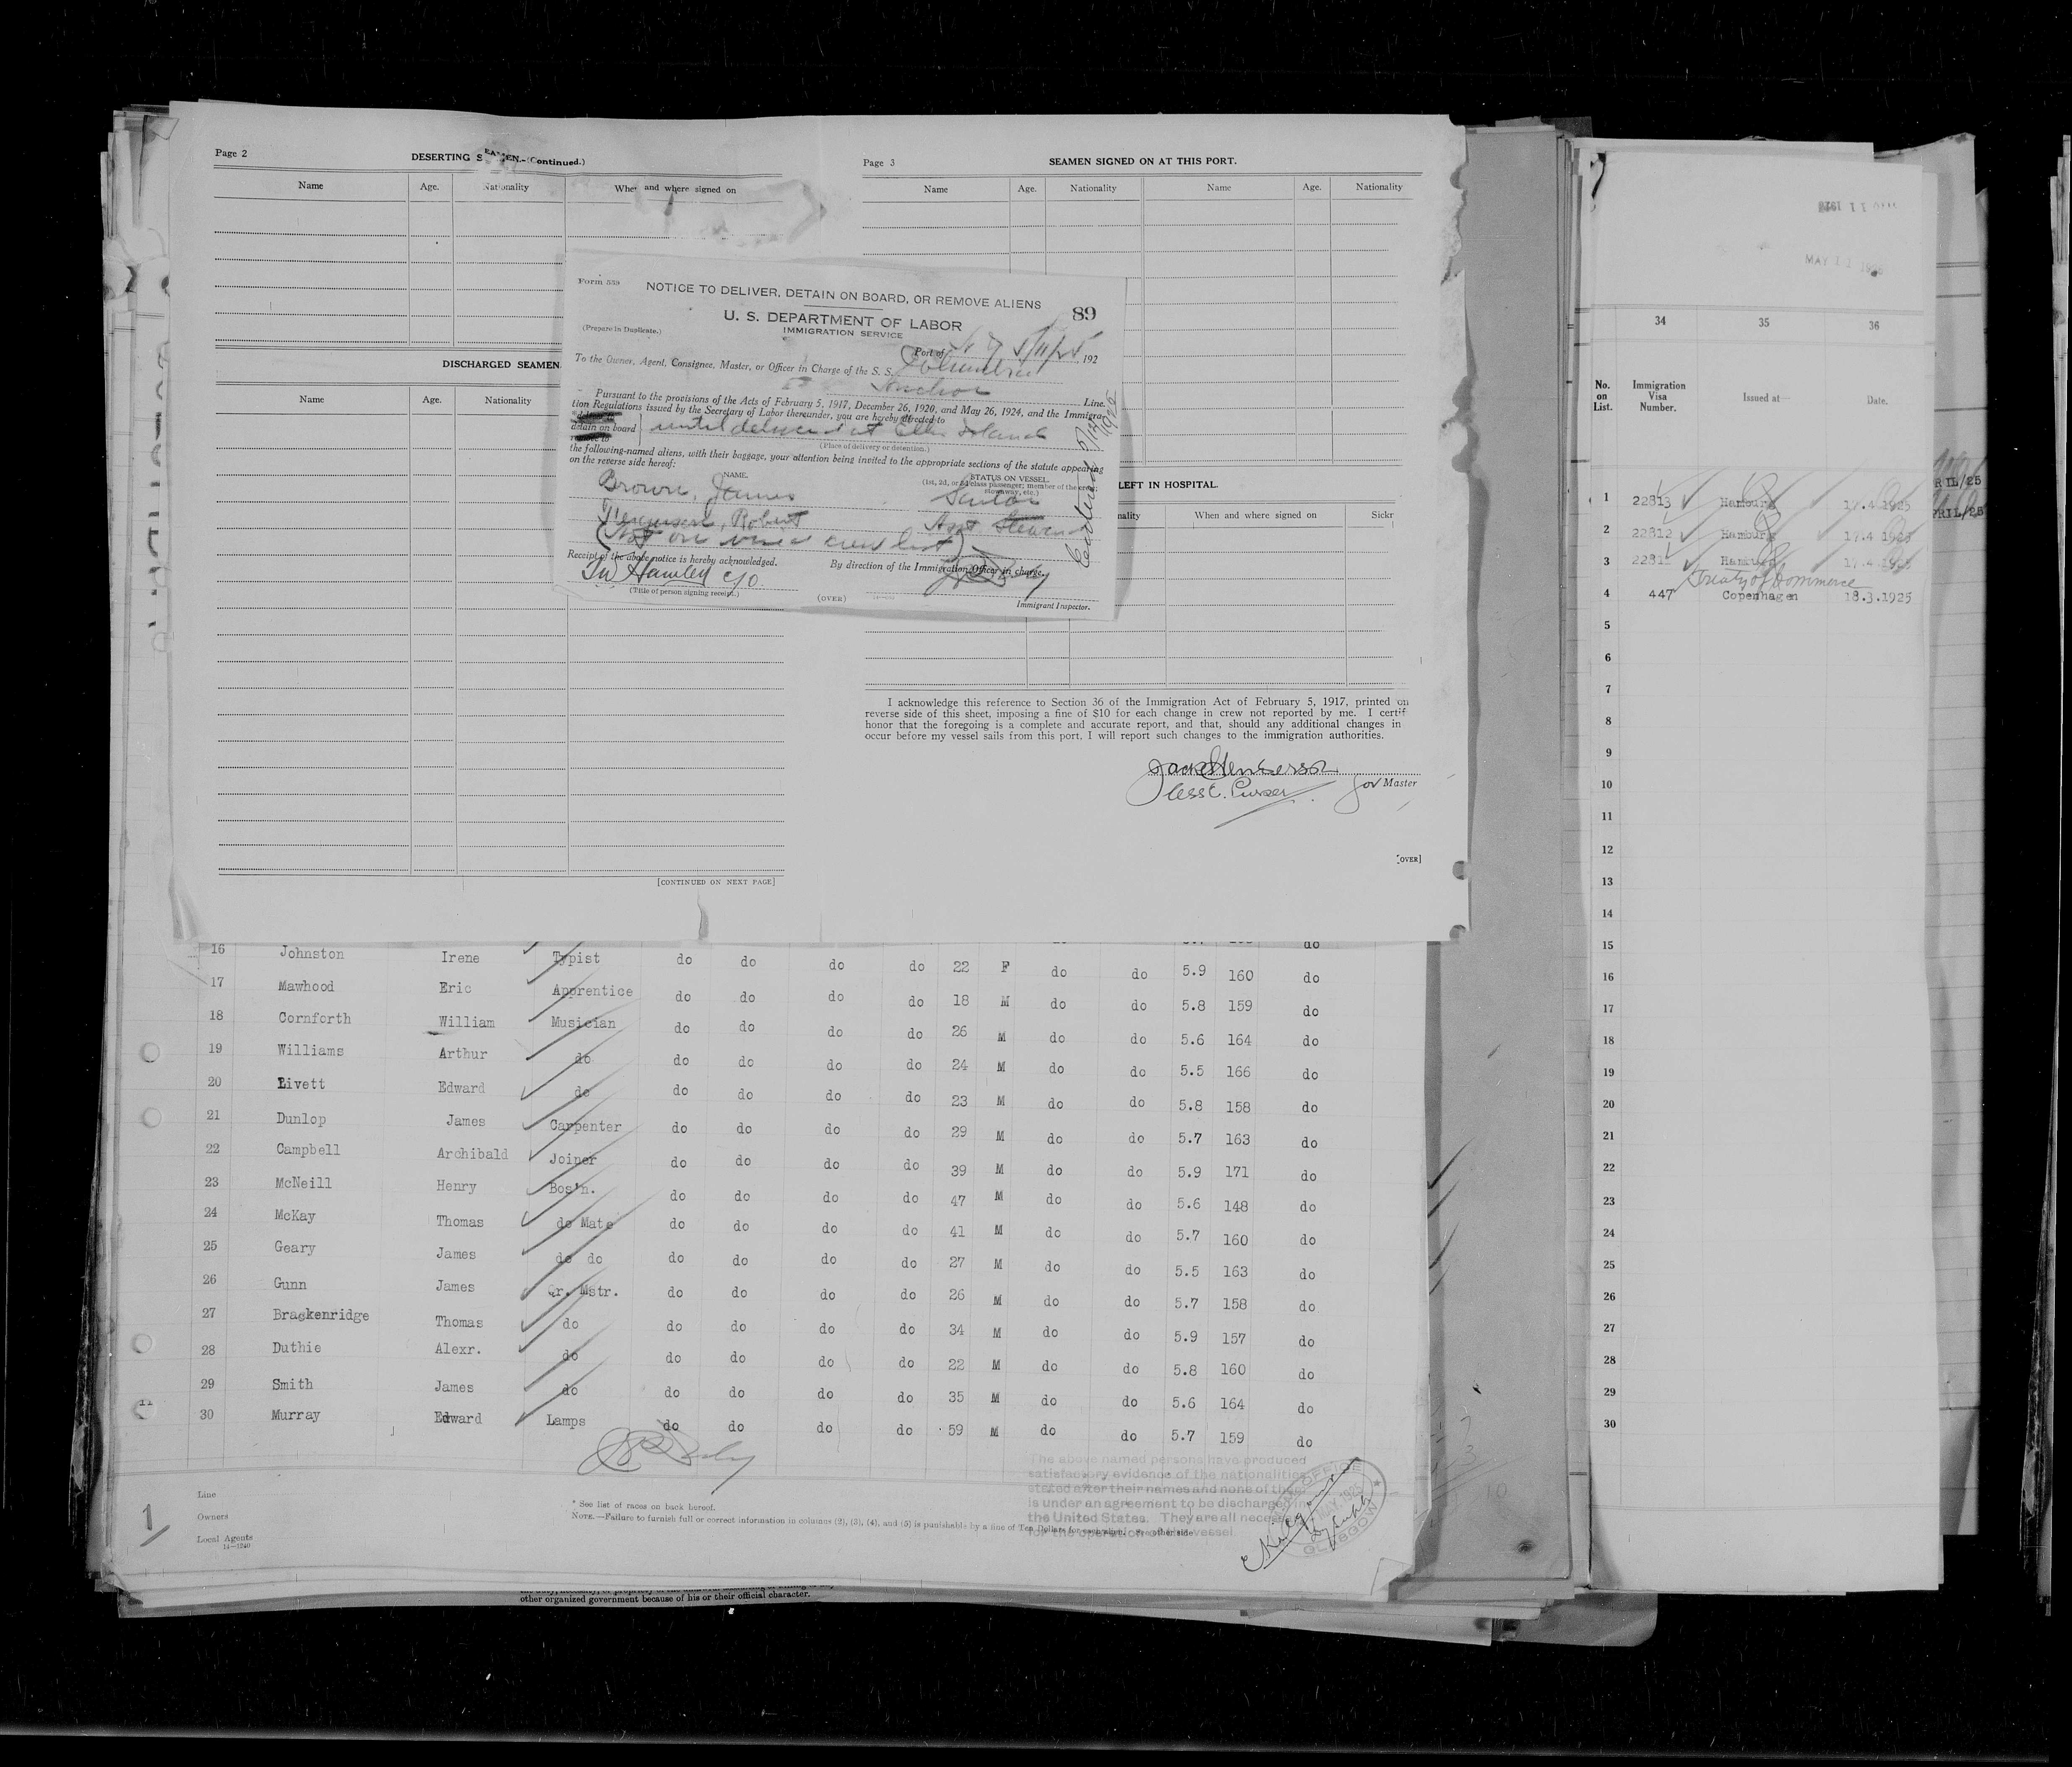 Page 2
DESERTING SEAMEN.-(Continued.)
Name Age. Nationality When and where signed on
DISCHARGED SEAMEN
Name Age. Nationality
[CONTINUED ON NEXT PAGE]
Page 3
SEAMEN SIGNED ON AT THIS PORT.
Name Age. Nationality Name Age. Nationality
LEFT IN HOSPITAL.
nality When and where signed on Sickr
I acknowledge this reference to Section 36 of the Immigration Act of February 5, 1917, printed on
reverse side of this sheet, imposing a fine of $10 for each change in crew not reported by me. I certif
honor that the foregoing is a complete and accurate report, and that, should any additional changes in
occur before my vessel sails from this port, I will report such changes to the immigration authorities.
Asst. Purser for Master
[OVER]
Form 539
NOTICE TO DELIVER, DETAIN ON BOARD, OR REMOVE ALIENS
89
U. S. DEPARTMENT OF LABOR
IMMIGRATION SERVICE
(Prepare in Duplicate.)
Port of N Y 5/11/25, 192
To the Owner, Agent, Consignee, Master, or Officer in Charge of the S. S. Columbia
Anchor Line.
Pursuant to the provisions of the Acts of February 5, 1917, December 26, 1920, and May 26, 1924, and the Immigra-
tion Regulations issued by the Secretary of Labor thereunder, you are hereby directed to
detain on board until delivered at Ellis Island
(Place of delivery or detention.)
the following-named aliens, with their baggage, your attention being invited to the appropriate sections of the statute appearing
on the reverse side hereof:
NAME. STATUS ON VESSEL.
(1st, 2d, or 3d class passenger; member of the crew;
stowaway, etc.)
Brown, James Sailor
Ferguson, Robert Asst Steward
(Not on visaed crew list)
Receipt of the above notice is hereby acknowledged.
By direction of the Immigration Officer in charge.
(Title of person signing receipt.)
(OVER)
Immigrant Inspector.
16 Johnston Irene Typist do do do do 22 F do do 5.9 160 do
17 Mawhood Eric Apprentice do do do do 18 M do do 5.8 159 do
18 Cornforth William Musician do do do do 26 M do do 5.6 164 do
19 Williams Arthur do do do do do 24 M do do 5.5 166 do
20 Livett Edward do do do do do 23 M do do 5.8 158 do
21 Dunlop James Carpenter do do do do 29 M do do 5.7 163 do
22 Campbell Archibald Joiner do do do do 39 M do do 5.9 171 do
23 McNeill Henry Bos'n. do do do do 47 M do do 5.6 148 do
24 McKay Thomas do Mate do do do do 41 M do do 5.7 160 do
25 Geary James do do do do do do 27 M do do 5.5 163 do
26 Gunn James Qr. Mstr. do do do do 26 M do do 5.7 158 do
27 Brackenridge Thomas do do do do do 34 M do do 5.9 157 do
28 Duthie Alexr. do do do do do 22 M do do 5.8 160 do
29 Smith James do do do do do 35 M do do 5.6 164 do
30 Murray Edward Lamps do do do do 59 M do do 5.7 159 do
Line
Owners
Local Agents
14—1240
1
* See list of races on back hereof.
NOTE.—Failure to furnish full or correct information in columns (2), (3), (4), and (5) is punishable by a fine of Ten Dollars for each alien. See other side
The above named persons have produced
satisfactory evidence of the nationalities
stated after their names and none of them
is under an agreement to be discharged in
the United States. They are all necessary
for the operation of the vessel
GLASGOW
other organized government because of his or their official character.
MAY 11 1925
34 35 36
No. on List. Immigration Visa Number. Issued at— Date.
1 22813 Hamburg 17.4.1925
2 22812 Hamburg 17.4 1925
3 22811 Hamburg 17.4.1925
Treaty of Commerce
4 447 Copenhagen 18.3.1925
5
6
7
8
9
10
11
12
13
14
15
16
17
18
19
20
21
22
23
24
25
26
27
28
29
30
RIL/25
PRIL/25